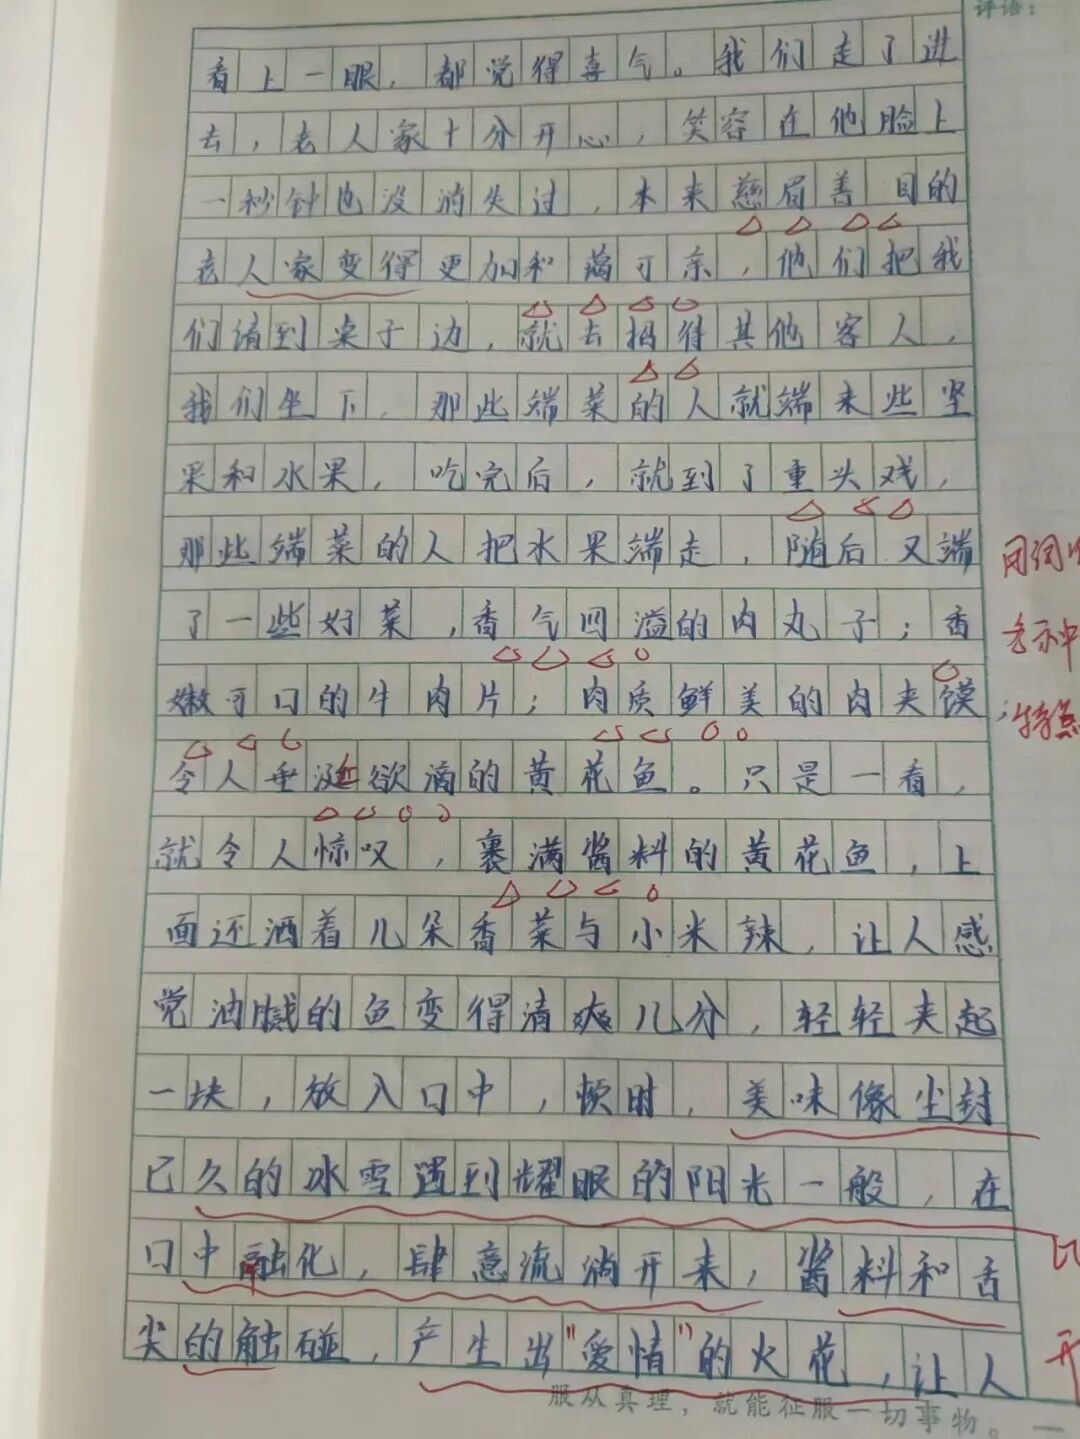 评语：
看上一眼，都觉得喜气。我们走了进
去，老人家十分开心，笑容在他脸上
一秒钟也没消失过，本来慈眉善目的
老人家变得更加和蔼可亲，他们把我
们请到桌子边，就去招待其他客人，
我们坐下，那些端菜的人就端来些坚
果和水果，吃完后，就到了重头戏，
那些端菜的人把水果端走，随后又端
了一些好菜，香气四溢的肉丸子；香
嫩可口的牛肉片；肉质鲜美的肉夹馍；
令人垂涎欲滴的黄花鱼。只是一看，
就令人惊叹，裹满酱料的黄花鱼，上
面还洒着几朵香菜与小米辣，让人感
觉油腻的鱼变得清爽几分，轻轻夹起
一块，放入口中，顿时，美味像尘封
已久的冰雪遇到耀眼的阳光一般，在
口中融化，肆意流淌开来，酱料和舌
尖的触碰，产生出"爱情"的火花，让人
服从真理，就能征服一切事物。
用词